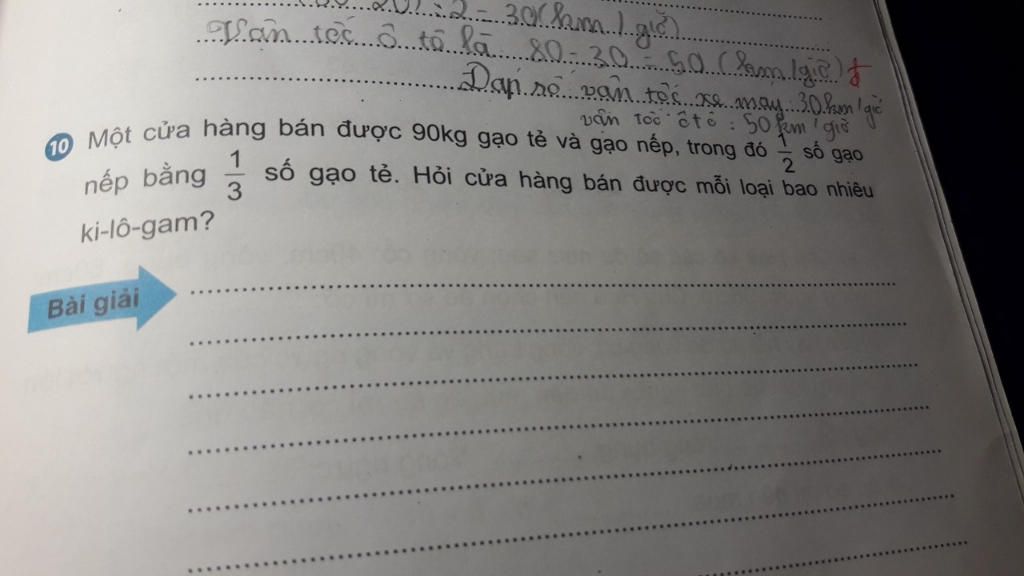 20) : 2 = 30 (km / giờ)
Vận tốc ô tô là 80 - 30 = 50 (km / giờ)
Đáp số vận tốc xe máy: 30 km / giờ
vận tốc ô tô : 50 km / giờ
10 Một cửa hàng bán được 90kg gạo tẻ và gạo nếp, trong đó 1/2 số gạo
nếp bằng 1/3 số gạo tẻ. Hỏi cửa hàng bán được mỗi loại bao nhiêu
ki-lô-gam?
Bài giải